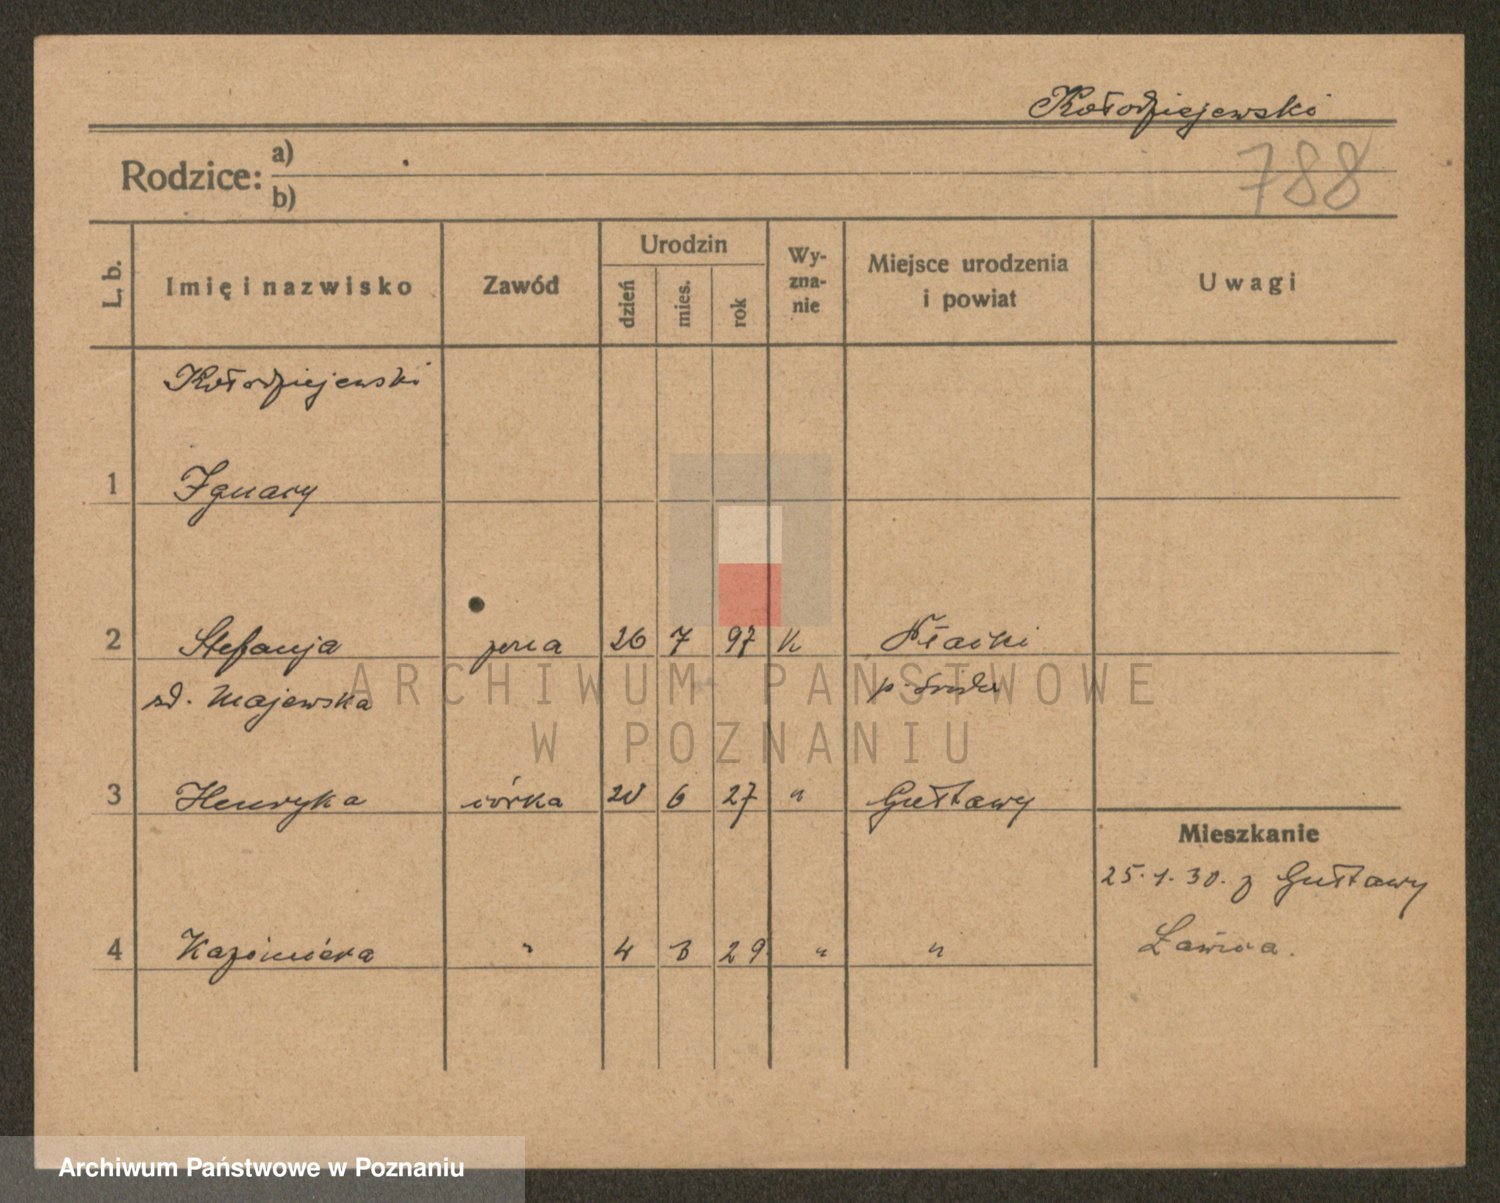 Kołodziejewski
Rodzice: a)
b)
788
L. b.
Imię i nazwisko
Zawód
Urodzin
dzień
mies.
rok
Wy-
zna-
nie
Miejsce urodzenia
i powiat
Uwagi
Kołodziejewski
1 Ignacy
2 Stefanja żona 26 7 97 K
zd. Majewska p. Środa
3 Henryka córka 6 27 " Gułtowy
Mieszkanie
25.1.30. z Gułtowy
4 Kazimiera " 4 3 29 " "
Ławica.
ARCHIWUM PAŃSTWOWE
W POZNANIU
Archiwum Państwowe w Poznaniu